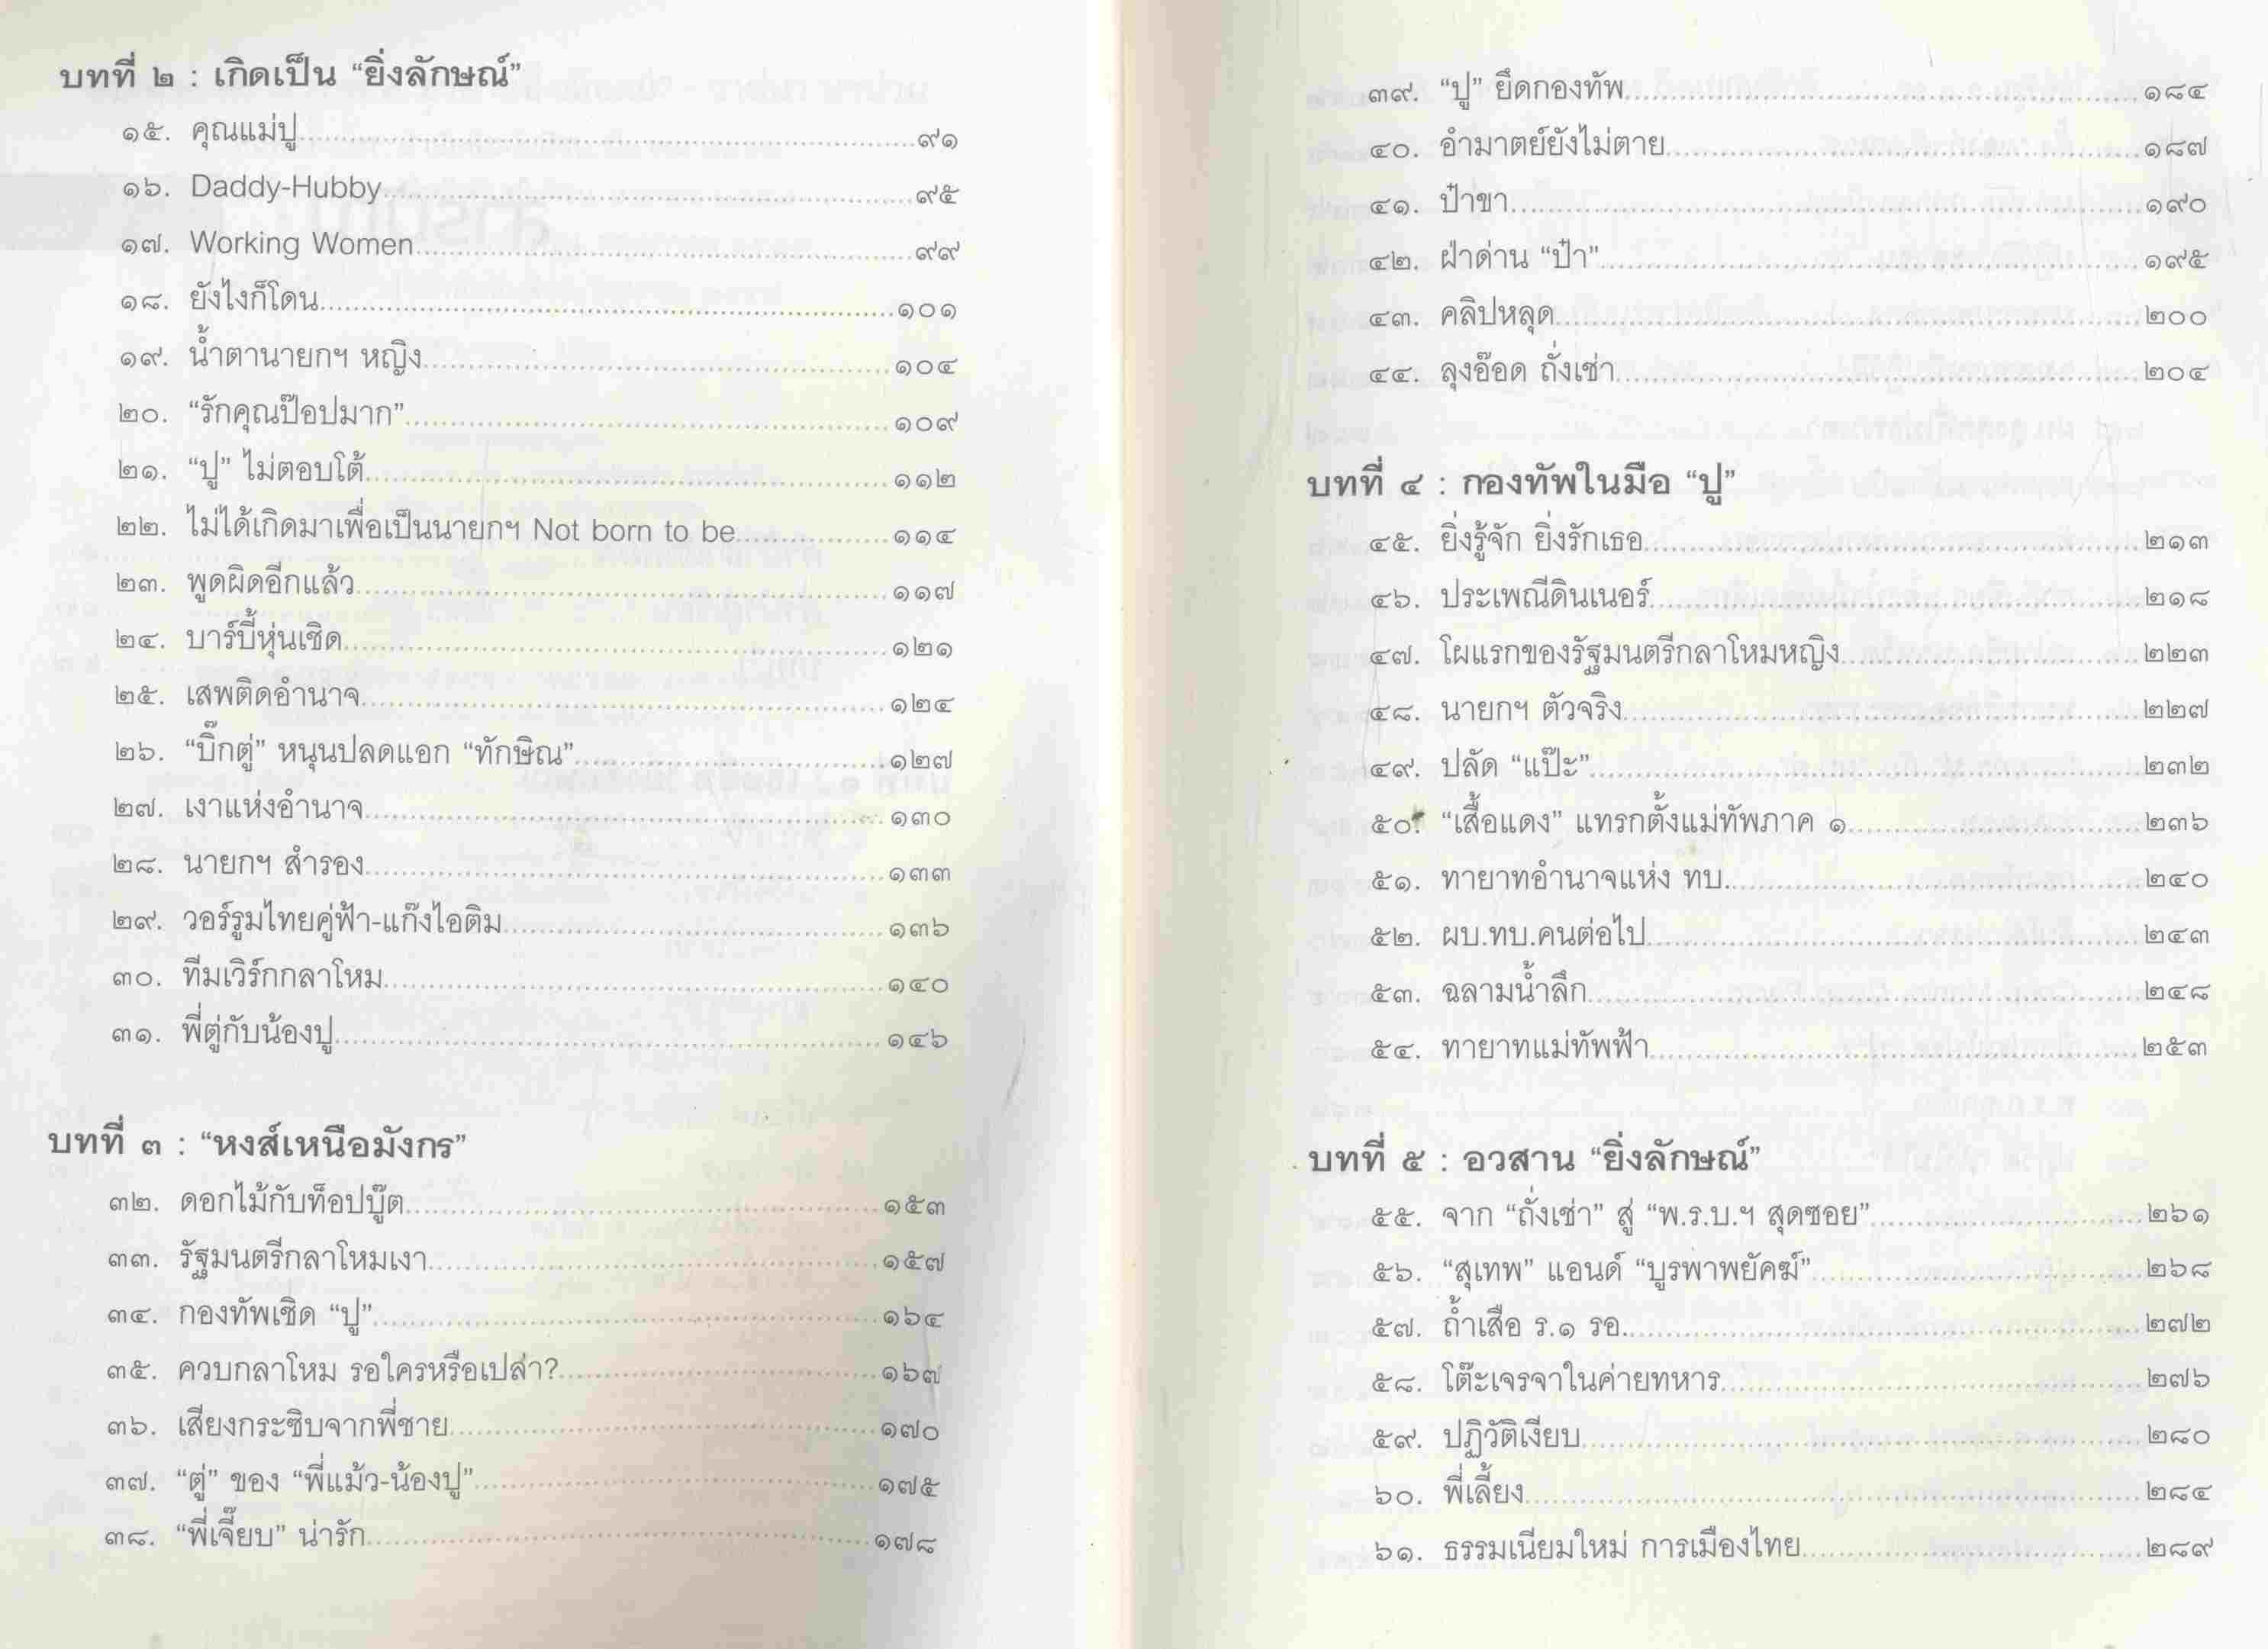 บทที่ ๒ : เกิดเป็น “ยิ่งลักษณ์”
๑๕. คุณแม่ปู...๙๑
๑๖. Daddy-Hubby...๙๕
๑๗. Working Women...๙๙
๑๘. ยังไงก็โดน...๑๐๑
๑๙. น้ำตานายกฯ หญิง...๑๐๔
๒๐. “รักคุณป๊อปมาก”...๑๐๙
๒๑. “ปู” ไม่ตอบโต้...๑๑๒
๒๒. ไม่ได้เกิดมาเพื่อเป็นนายกฯ Not born to be...๑๑๔
๒๓. พูดผิดอีกแล้ว...๑๑๗
๒๔. บาร์บี้หุ่นเชิด...๑๒๑
๒๕. เสพติดอำนาจ...๑๒๔
๒๖. “บิ๊กตู่” หนุนปลดแอก “ทักษิณ”...๑๒๗
๒๗. เงาแห่งอำนาจ...๑๓๐
๒๘. นายกฯ สำรอง...๑๓๓
๒๙. วอร์รูมไทยคู่ฟ้า-แก๊งไอติม...๑๓๖
๓๐. ทีมเวิร์กกลาโหม...๑๔๐
๓๑. พี่ตู่กับน้องปู...๑๔๖
บทที่ ๓ : “หงส์เหนือมังกร”
๓๒. ดอกไม้กับท็อปบู๊ต...๑๕๓
๓๓. รัฐมนตรีกลาโหมเงา...๑๕๗
๓๔. กองทัพเชิด “ปู”...๑๖๔
๓๕. ควบกลาโหม รอใครหรือเปล่า?...๑๖๗
๓๖. เสียงกระซิบจากพี่ชาย...๑๗๐
๓๗. “ตู่” ของ “พี่แม้ว-น้องปู”...๑๗๕
๓๘. “พี่เจี๊ยบ” น่ารัก...๑๗๘
๓๙. “ปู” ยึดกองทัพ...๑๘๔
๔๐. อำมาตย์ยังไม่ตาย...๑๘๗
๔๑. ป๋าขา...๑๙๐
๔๒. ฝ่าด่าน “ป๋า”...๑๙๕
๔๓. คลิปหลุด...๒๐๐
๔๔. ลุงอ๊อด ถั่งเช่า...๒๐๔
บทที่ ๔ : กองทัพในมือ “ปู”
๔๕. ยิ่งรู้จัก ยิ่งรักเธอ...๒๑๓
๔๖. ประเพณีดินเนอร์...๒๑๘
๔๗. โผแรกของรัฐมนตรีกลาโหมหญิง...๒๒๓
๔๘. นายกฯ ตัวจริง...๒๒๗
๔๙. ปลัด “แป๊ะ”...๒๓๒
๕๐. “เสื้อแดง” แทรกตั้งแม่ทัพภาค ๑...๒๓๖
๕๑. ทายาทอำนาจแห่ง ทบ...๒๔๐
๕๒. ผบ.ทบ.คนต่อไป...๒๔๓
๕๓. ฉลามน้ำลึก...๒๔๘
๕๔. ทายาทแม่ทัพฟ้า...๒๕๓
บทที่ ๕ : อวสาน “ยิ่งลักษณ์”
๕๕. จาก “ถั่งเช่า” สู่ “พ.ร.บ.ฯ สุดซอย”...๒๖๑
๕๖. “สุเทพ” แอนด์ “บูรพาพยัคฆ์”...๒๖๘
๕๗. ถ้ำเสือ ร.๑ รอ...๒๗๒
๕๘. โต๊ะเจรจาในค่ายทหาร...๒๗๖
๕๙. ปฏิวัติเงียบ...๒๘๐
๖๐. พี่เลี้ยง...๒๘๔
๖๑. ธรรมเนียมใหม่ การเมืองไทย...๒๘๙